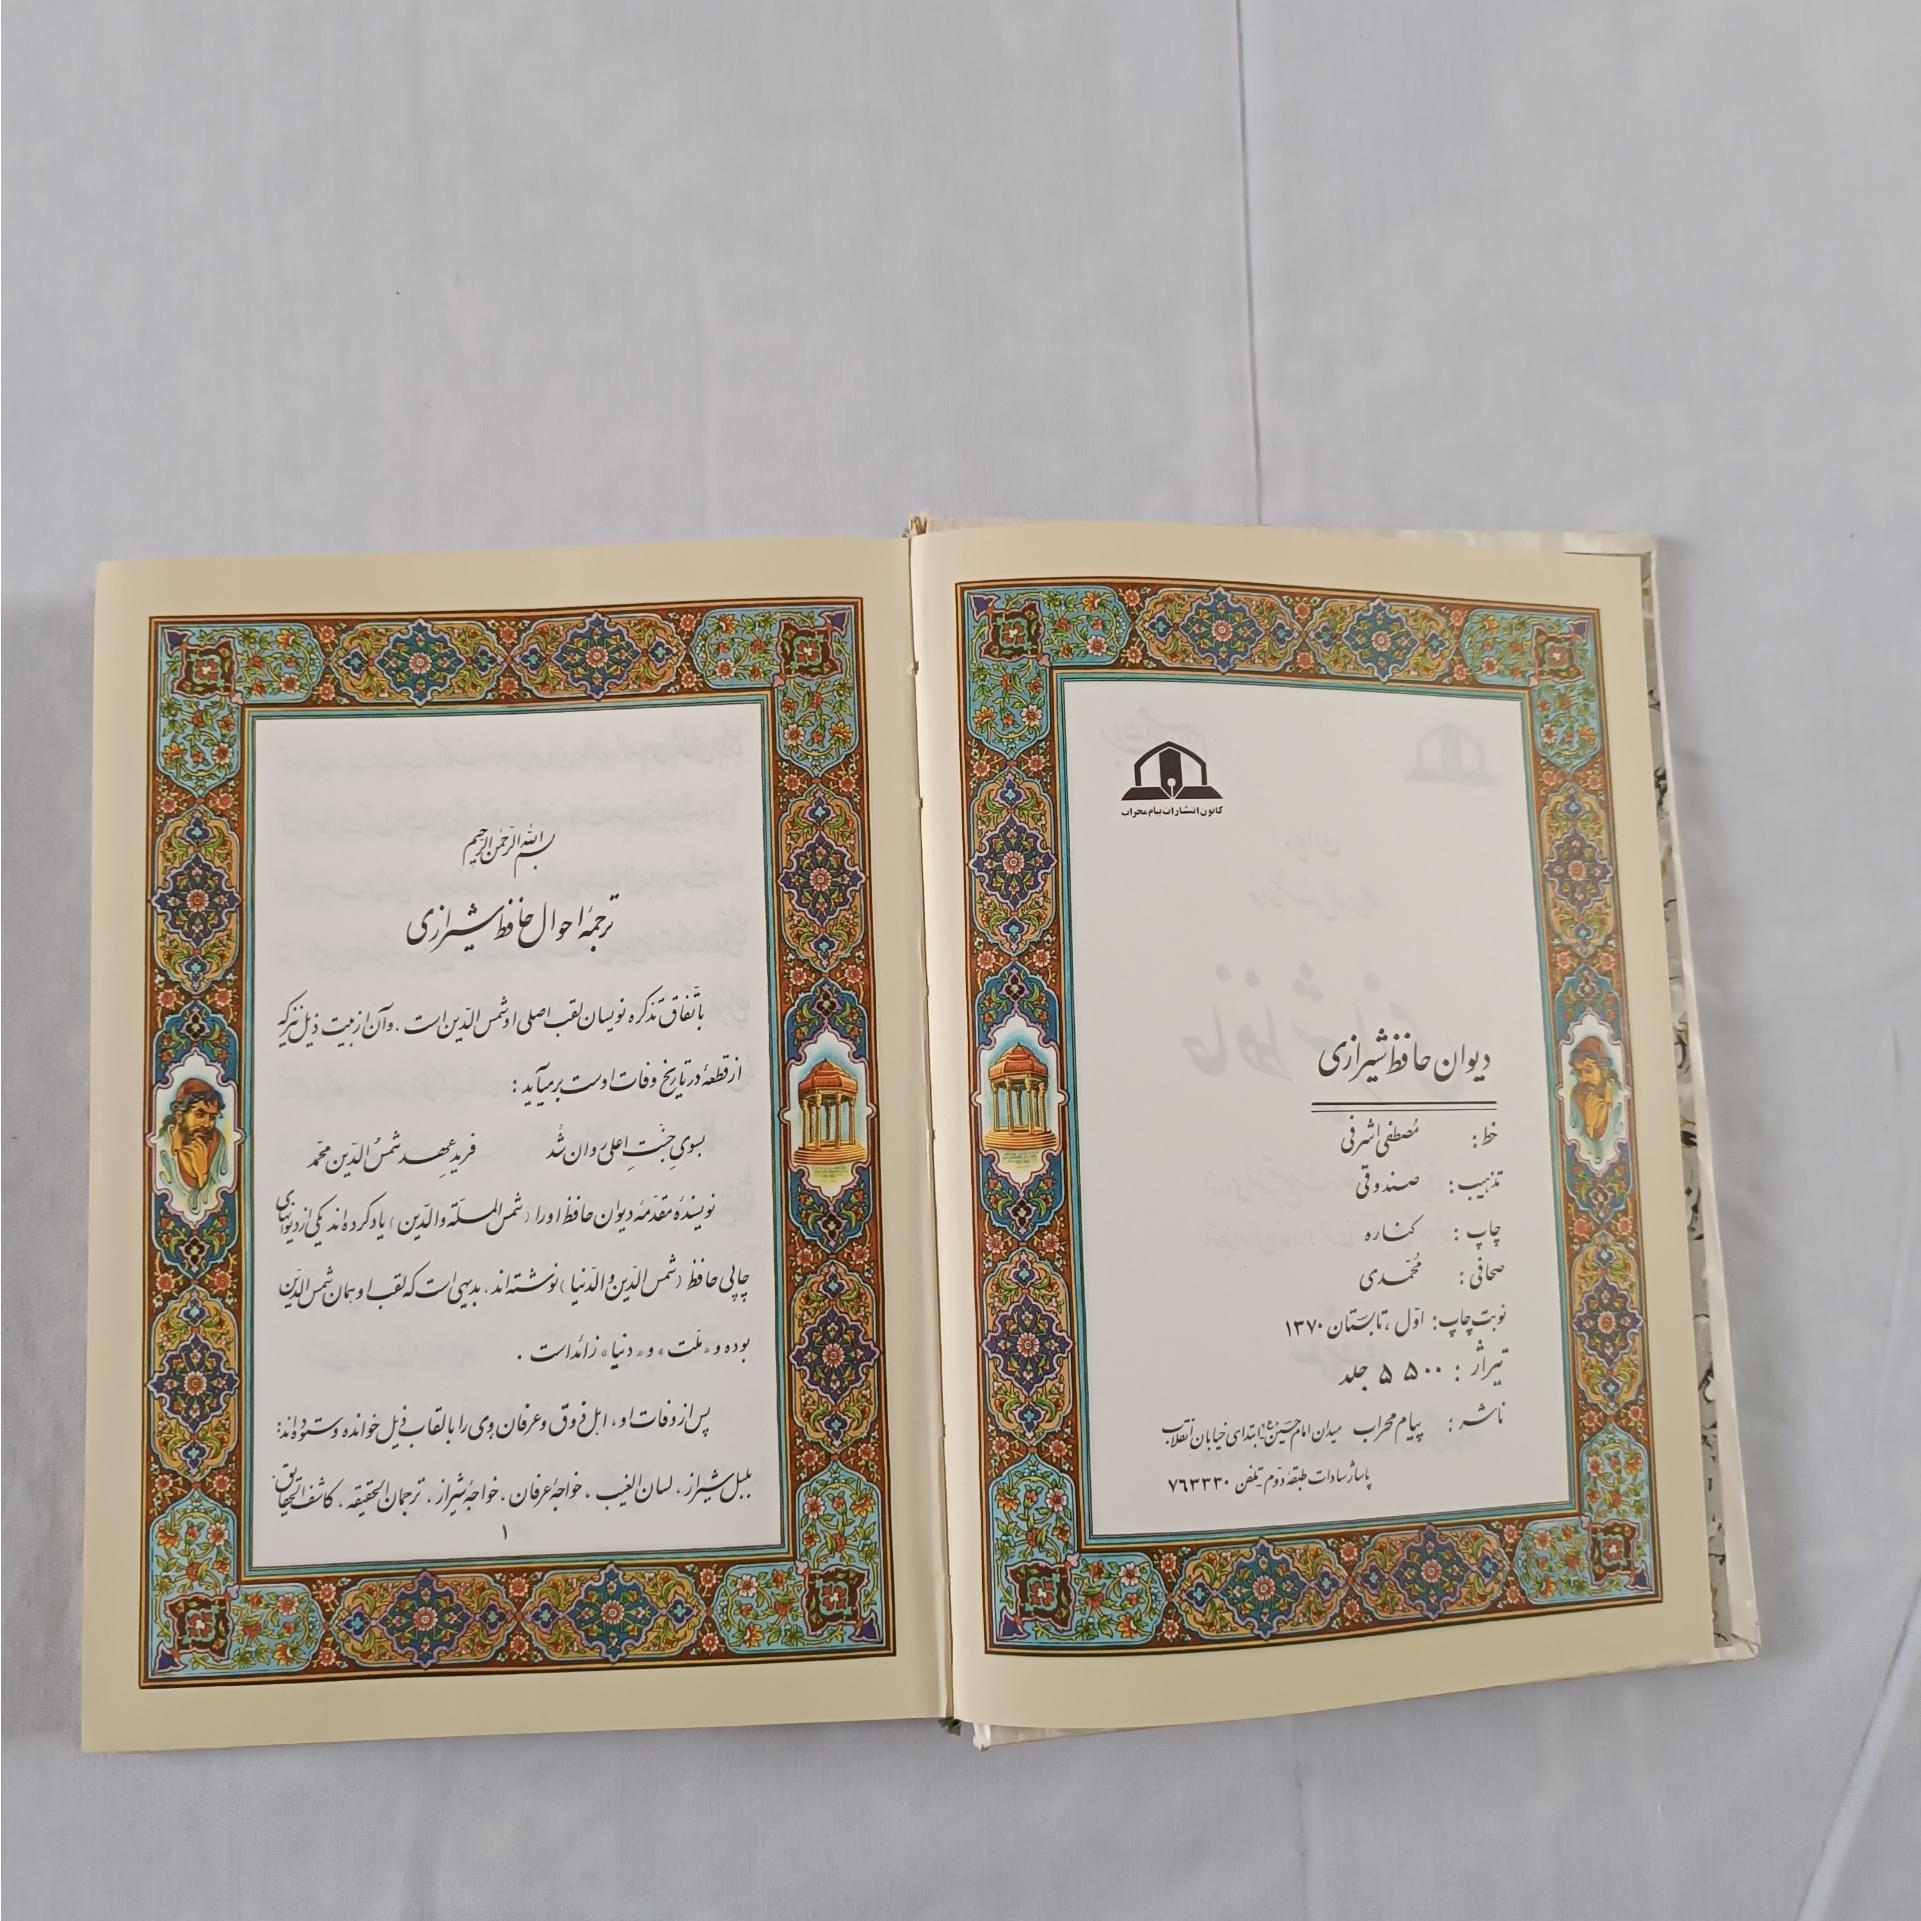 کانون انتشارات پیام محراب
دیوان حافظ شیرازی
خط: مُصطفی اشرفی
تذهیب: صندوقی
چاپ: کناره
صحافی: مُحمّدی
نوبت چاپ: اوّل، تابستان ۱۳۷۰
تیراژ: ۵۵۰۰ جلد
ناشر: پیام محراب میدان امام حسین (ع) ابتدای خیابان انقلاب
پاساژ سادات طبقه دوّم - تلفن ۷۶۳۳۳۰
بسم الله الرّحمن الرّحیم
ترجمهٔ احوال حافظ شیرازی
باتّفاق تذکره نویسان لقب اصلی او شمس الدّین است. و آن از بیت ذیل نیز که
از قطعهٔ در تاریخ وفات اوست برمیآید:
بسویِ جنّتِ اعلی روان شُد فریدِ عهد شمسُ الدّین محمّد
نویسندهٔ مقدّمهٔ دیوان حافظ او را (شمس الملّة والدّین) یاد کرده اند یکی از دیوانهای
چاپی حافظ (شمس الدّین و الدّنیا) نوشته اند، بدیهی است که لقب او همان شمس الدّین
بوده و «ملّت» و «دنیا» زائد است.
پس از وفات او، اهل ذوق و عرفان وی را بالقاب ذیل خوانده و ستوده اند:
بلبل شیراز، لسان الغیب، خواجهٔ عرفان، خواجهٔ شیراز، ترجمان الحقیقه، کاشف الحقایق
۱